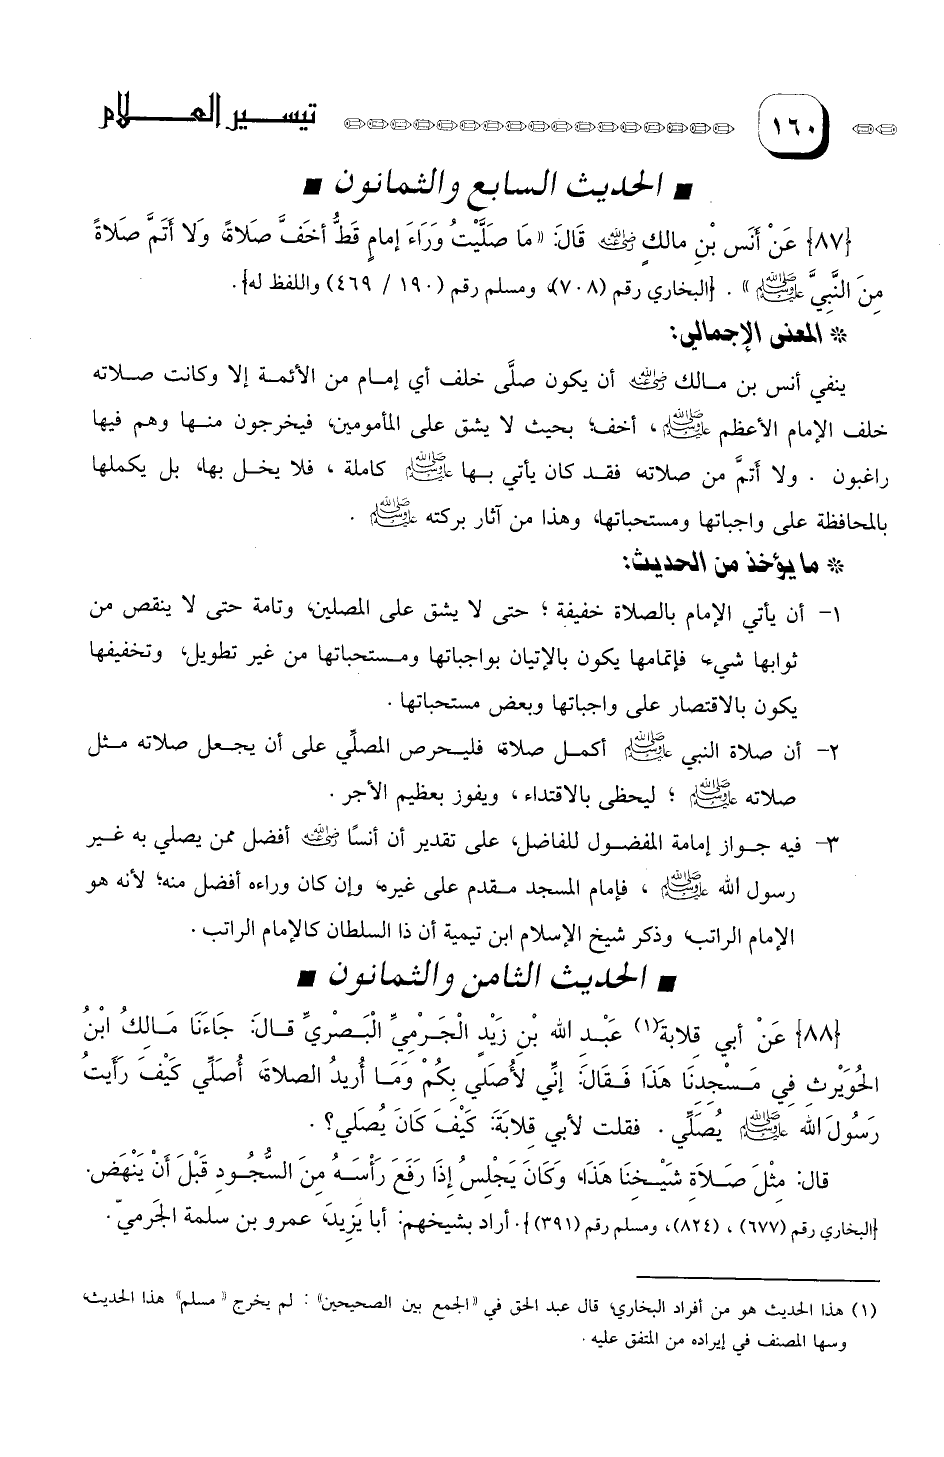 ١٦٠ تيسير العلام
■ الحديث السابع والثمانون ■
{٨٧} عَنْ أَنَس بْنِ مالكٍ ﵁ قَالَ: «مَا صَلَّيْتُ وَرَاءَ إِمامٍ قَطُّ أخَفَّ صَلاةً، ولا أتَمَّ صَلاةً
مِنَ النَّبيَّ ﷺ». {البخاري رقم (٧٠٨)، ومسلم رقم (١٩٠ / ٤٦٩) واللفظ له}.
* المعنى الإجمالي:
ينفي أنس بن مـالك ﵁ أن يكون صلَّى خلف أي إمـام من الأئمـة إلا وكانت صـلاته
خلف الإمام الأعظم ﷺ، أخف؛ بحيث لا يشق على المأمومين، فيخرجون منـها وهم فيها
راغبون . ولا أتمَّ من صلاته، فقـد كان يأتي بـها ﷺ كاملة ، فلا يخـل بها، بل يكملها
بالمحافظة على واجباتها ومستحباتها، وهذا من آثار بركته ﷺ .
* ما يؤخذ من الحديث:
١- أن يأتي الإمام بالصلاة خفيفة ؛ حتى لا يشق على المصلين، وتامة حتى لا ينقص من
ثوابها شيء، فإتمامها يكون بالإتيان بواجباتها ومـستحباتها من غير تطويل، وتخفيفها
يكون بالاقتصار على واجباتها وبعض مستحباتها .
٢- أن صلاة النبي ﷺ أكمـل صلاة، فليـحرص المصلِّي على أن يجـعل صلاته مـثل
صلاته ﷺ ؛ ليحظى بالاقتداء ، ويفوز بعظيم الأجر .
٣- فيه جـواز إمامة المفضـول للفاضل، على تقدير أن أنسًا ﵁ أفضل ممن يصلي به غـير
رسول الله ﷺ ، فإمام المسجد مـقدم على غيره، وإن كان وراءه أفضل منه؛ لأنه هو
الإمام الراتب، وذكر شيخ الإسلام ابن تيمية أن ذا السلطان كالإمام الراتب.
■ الحديث الثامن والثمانون ■
{٨٨} عَنْ أبي قلابة(١) عَبْـد الله بْنِ زَيْدٍ الجَـرْميِّ البَـصْريِّ قـالَ: جَاءَنَا مَـالكُ ابْنُ
الحُوَيْرث فِي مَـسْجدنَا هَذَا فَـقَالَ: إنِّي لأُصَلي بكُمْ وَمَـا أُريدُ الصلاةَ، أُصَلِّي كَيْفَ رَأَيتُ
رَسُولَ الله ﷺ يُصَلِّي . فقلت لأبي قلابَةَ: كَيْفَ كَانَ يُصَلي؟ .
قال: مِثْلَ صَـلاَةِ شَيْـخنَا هَذَا، وَكَانَ يَجْلِسُ إذَا رَفَعَ رَأْسَـهُ مِنَ السُّجُـودِ قَبْلَ أَنْ يَنْهَضَ.
{البخاري رقم (٦٧٧) ، (٨٢٤)، ومسلم رقم (٣٩١)}. أراد بشيخهم: أبا يَزيدَ، عمرو بن سلمة الجَرميّ.
(١) هذا الحديث هو من أفراد البخاري، قال عبد الحق في «الجمع بين الصحيحين» : لم يخرج «مسلم» هذا الحديث،
وسها المصنف في إيراده من المتفق عليه .